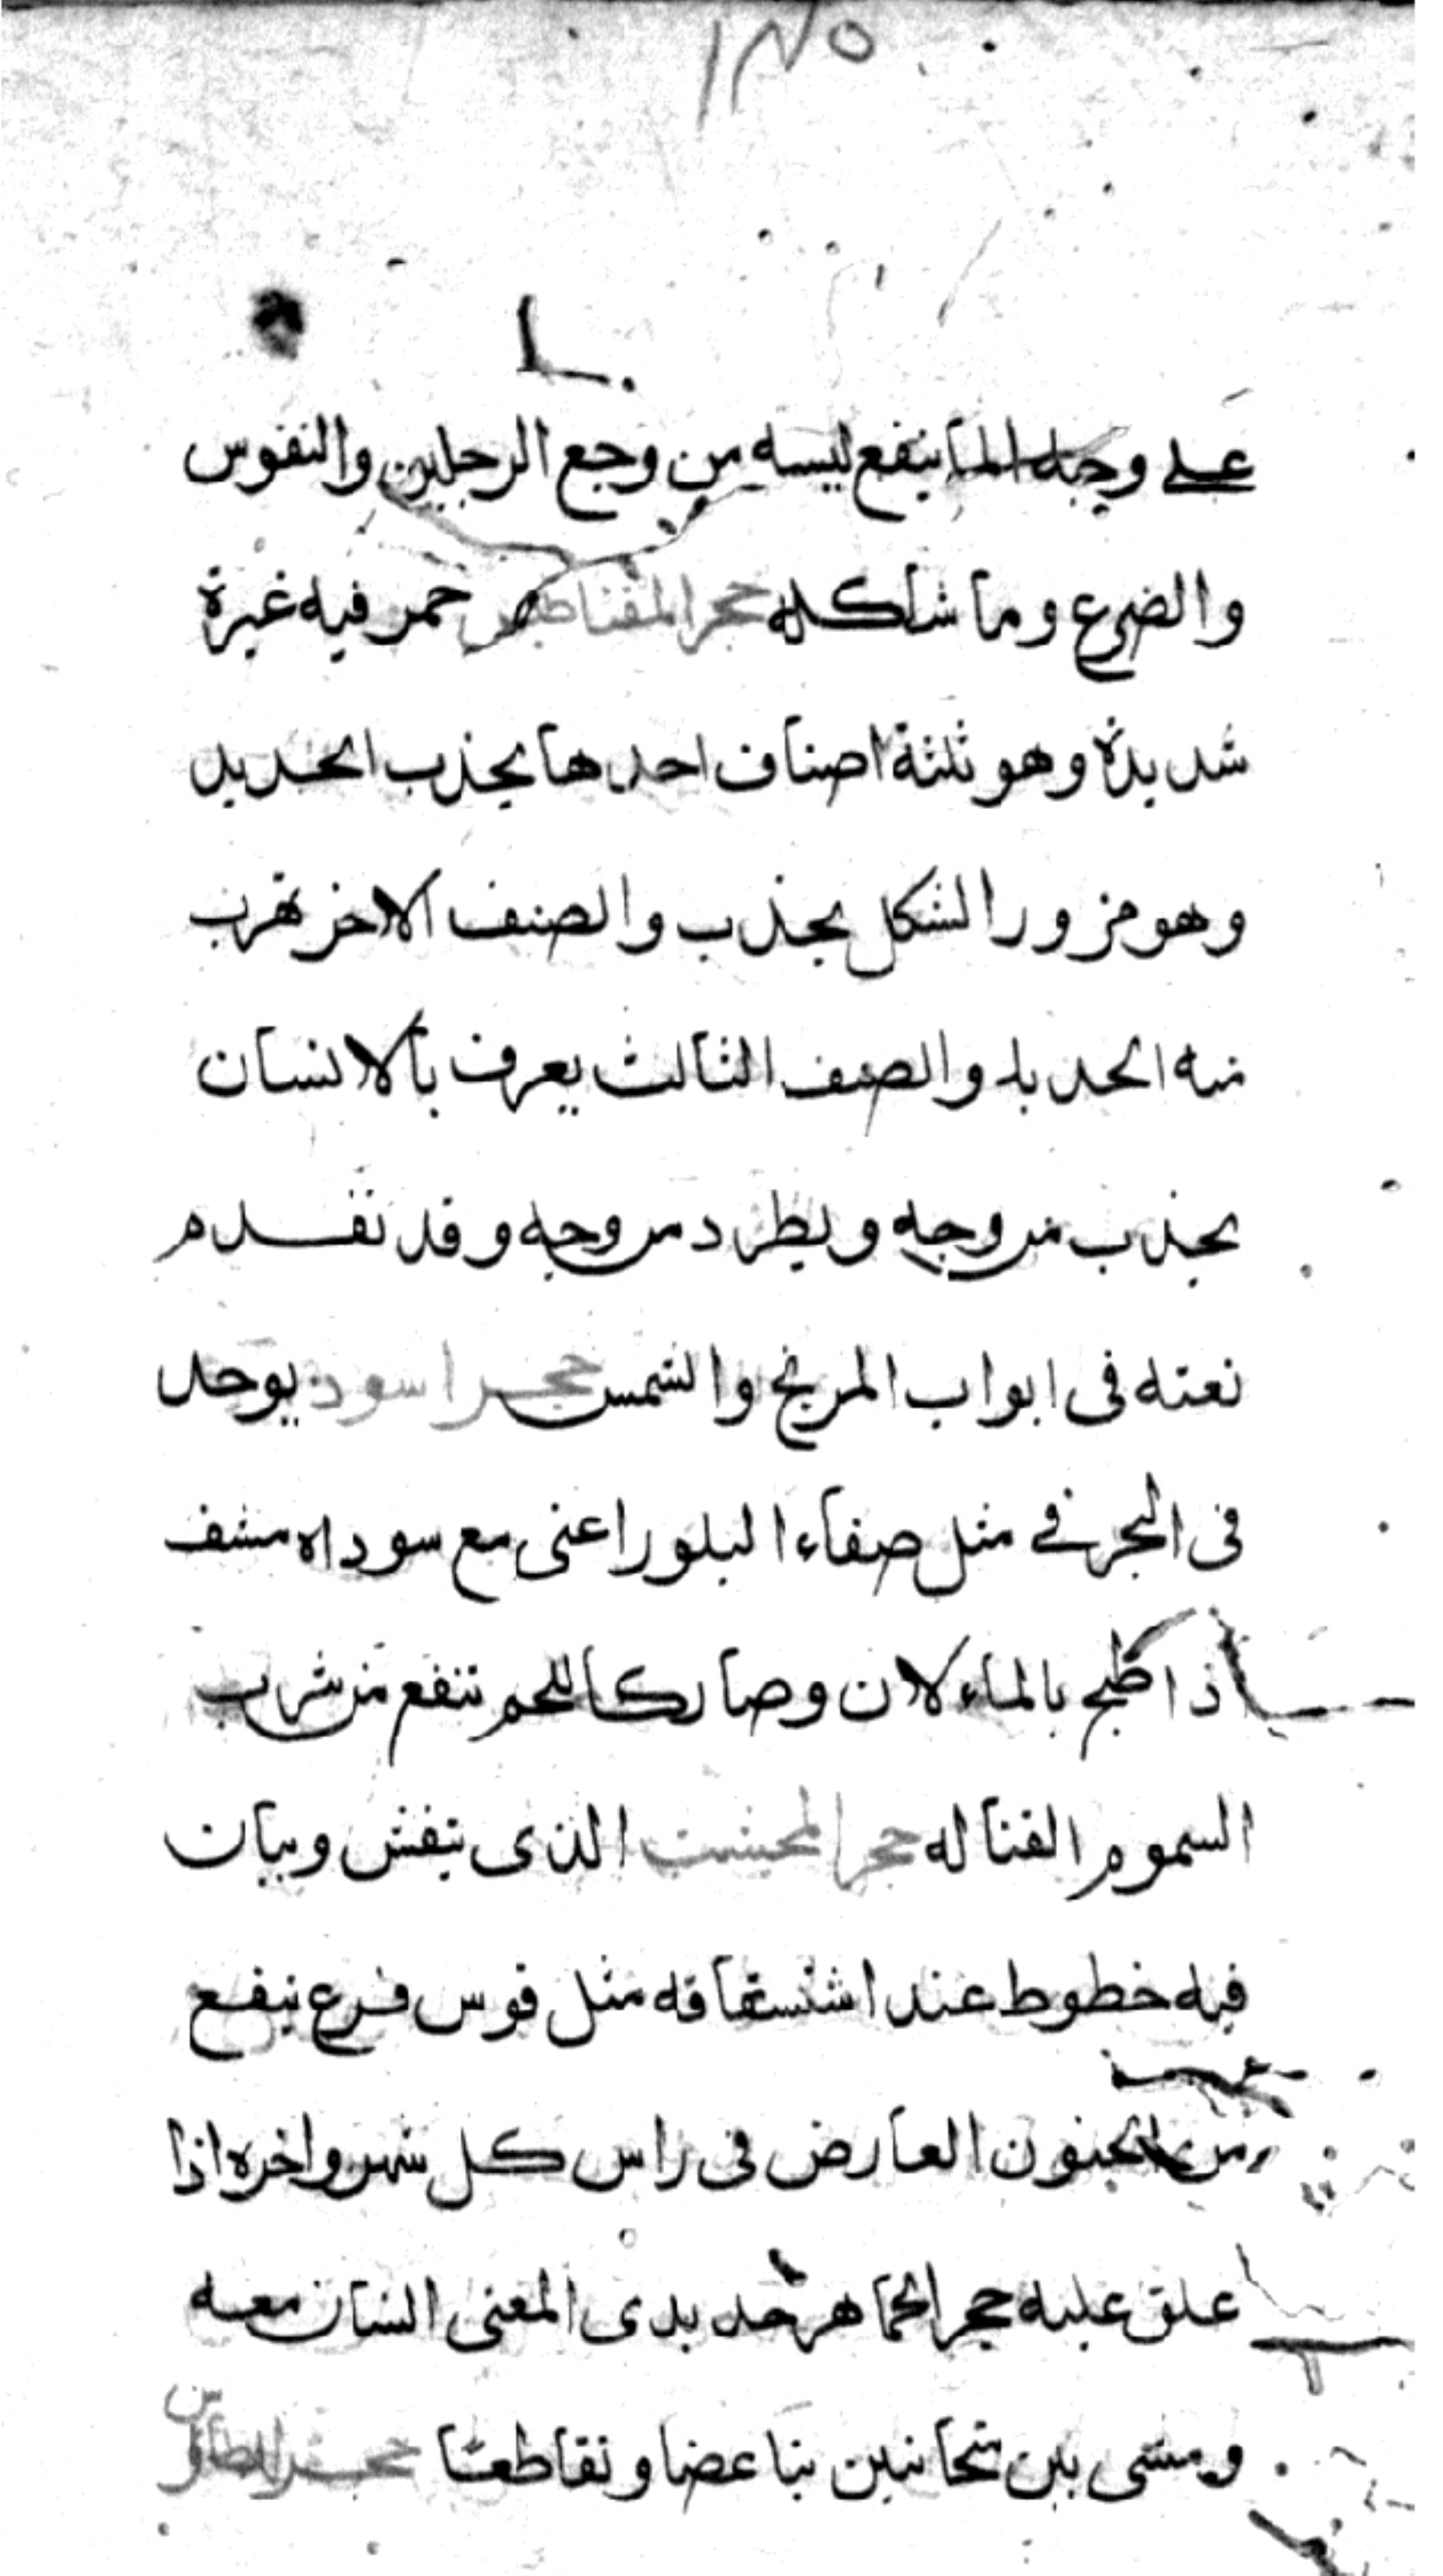 ١٣٥
على وجه الما ينفع لبسه من وجع الرجلين والنقوس
والضرع وما شاكله حجر المقناطيس حمر فيه غبرة
شديدة وهو ثلثة اصناف احدها يجذب الحديد
وهو مزور الشكل يجذب والصنف الاخر تهرب
منه الحديد والصنف الثالث يعرف بالانسان
يجذب من وجه ويطرد من وجه وقد تقدم
نعته فى ابواب المريخ والشمس حجر اسود يوجد
فى البحر فى مثل صفاء البلور اعنى مع سواده مشف
اذا طبخ بالماء لان وصار كاللحم تنفع من شرب
السموم القتاله حجر الذى ينفش وبيان
فيه خطوط عند اشتقاقه مثل قوس قزع ينفع
من الجنون العارض فى راس كل شهر واخره اذا
علق عليه حجر الحماهر حديدى المعنى السنان معه
ومشى بين متحانبين تباعضا وتقاطعا حجر الطاوس